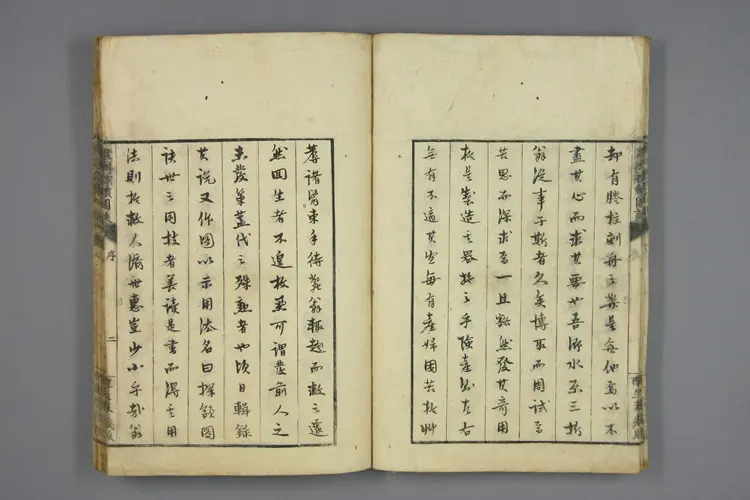 却有膠柱刻舟之弊是無他焉以不
盡其心而求其要也吾師水原三折
翁從事于斯者久矣博取而周試焉
苦思而深求焉一旦豁然發其奇用
於是製造之器於之乎險產
無有不適其毎有產婦困苦於艸
蓐諸醫束手待斃翁輒趨而救之遽
然回生者不遑枚擧可謂發前人之
未發策蓋代之殊勲者也頃日輯錄
其說又作圖以示用法名曰探頷圖
訣世之同技者善讀是書而得之用
法則於救人濟世惠豈少小乎哉翁
序 二